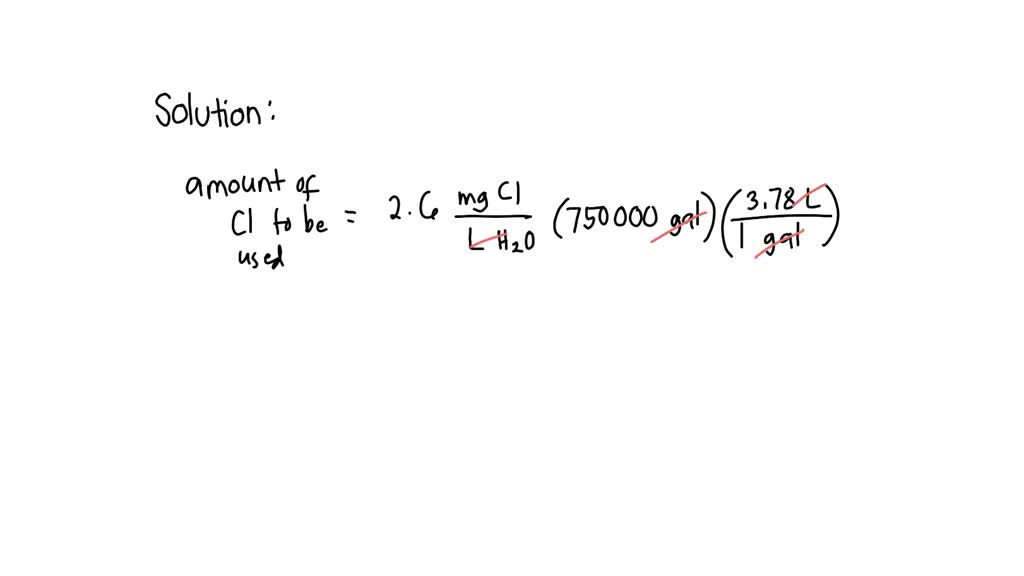 Solution:
amount of
Cl to be used = 2.6 mg Cl / L H₂O (750000 gal) (3.78 L / 1 gal)